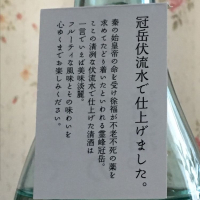 冠岳伏流水で仕上げました。
秦の始皇帝の命を受け徐福が不老不死の薬を
求めてたどり着いたといわれる霊峰冠岳。
ここの清冽な伏流水で仕上げた清酒は
一言でいえば美味淡麗。
フルーティな風味とその味わいを
心ゆくまでお楽しみください。